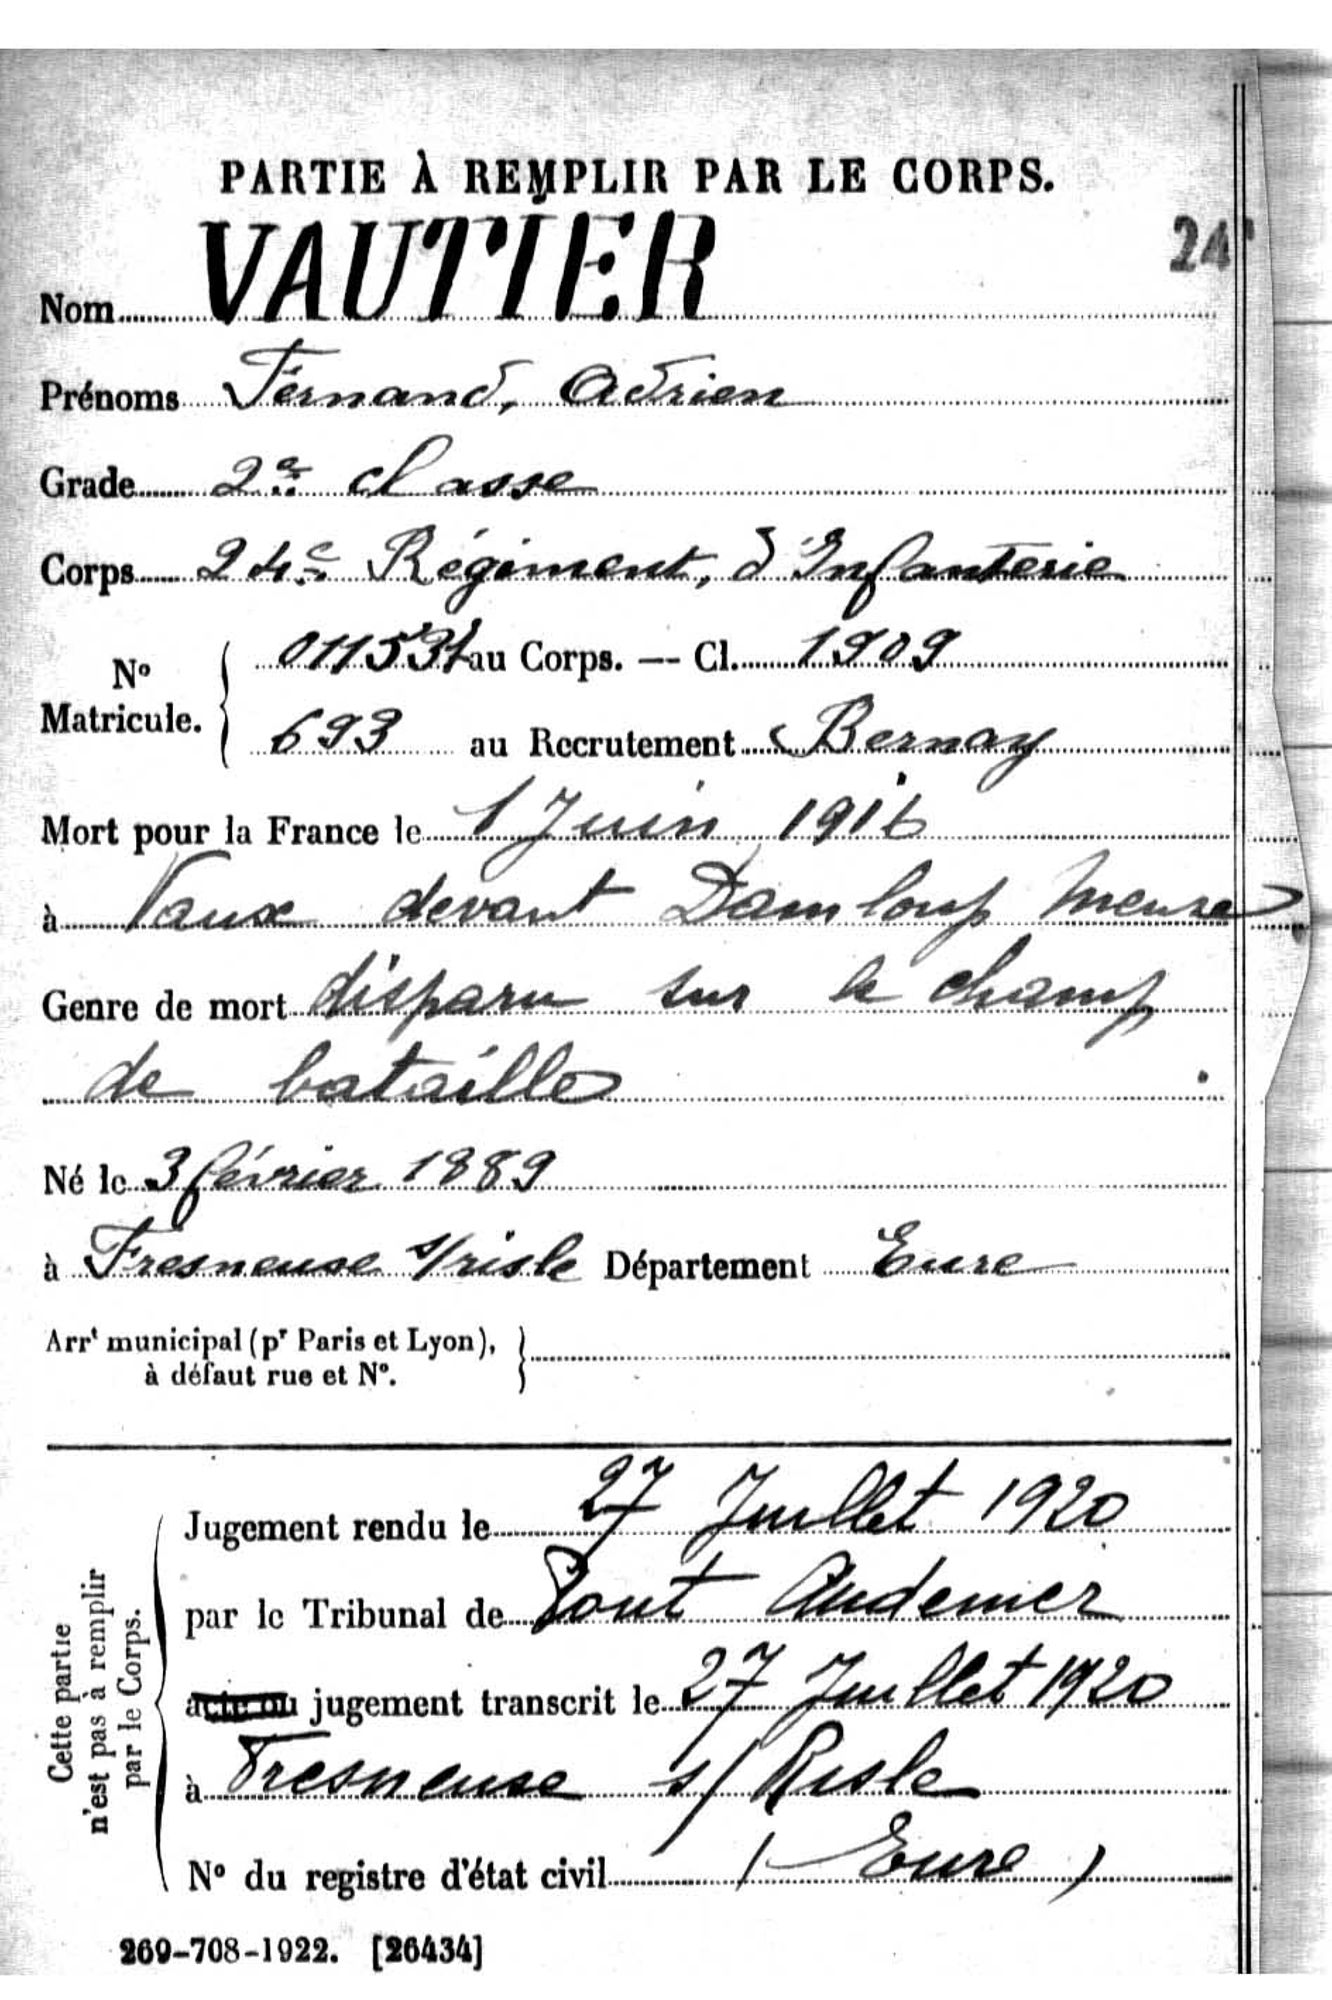 PARTIE À REMPLIR PAR LE CORPS.
24
Nom VAUTIER
Prénoms Fernand, Adrien
Grade 2e classe
Corps 24e Régiment, d'Infanterie
No Matricule.
au Corps. — Cl. 1909
693 au Recrutement Bernay
Mort pour la France le 1 Juin 1916
à Vaux devant Damloup Meuse
Genre de mort disparu sur le champ
de bataille
Né le 3 février 1889
à Fresneuse s/risle Département Eure
Arrt municipal (pr Paris et Lyon),
à défaut rue et No.
Cette partie
n'est pas à remplir
par le Corps.
Jugement rendu le 27 Juillet 1920
par le Tribunal de Pont Audemer
acte ou jugement transcrit le 27 Juillet 1920
à Fresneuse s/ Risle
No du registre d'état civil ( Eure )
269-708-1922. [26434]